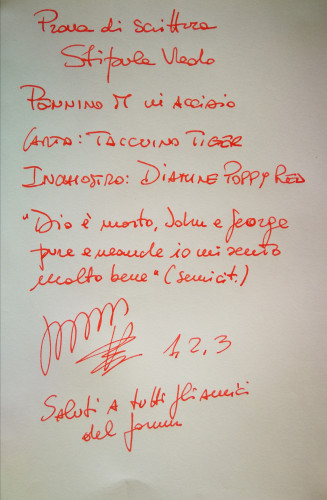 Prova di scrittura
Stifuela Vledo
PENNINO M in Acciaio
CARTA: TACCUINO TIGER
INCHIOSTRO: DIAMINE POPPY RED
"Dio è morto, John e George
pure e neanche io mi sento
molto bene" (semicit.)
1, 2, 3
SALUTI A tutti gli amici
del forum